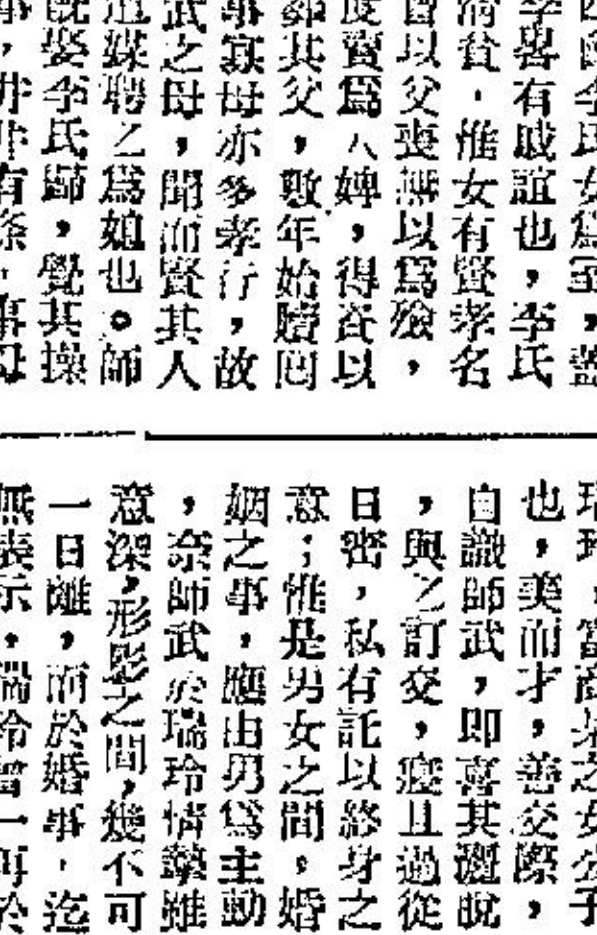 四會李氏女爲室，蓋
李畧有戚誼也，李氏
淸貧，惟女有賢孝名
曾以父喪無以爲殮，
度賣爲人婢，得資以
葬其父，數年始贖囘
事寡母亦多孝行，故
武之母，聞而賢其人
道媒聘之爲媳也。師
旣娶李氏歸，覺其操
事，井井有條，事母
瑞玲，富商某之女公子
也，美而才，善交際，
自識師武，卽喜其灑脫
，與之訂交，寖且過從
日密，私有託以終身之
意；惟是男女之間，婚
姻之事，應由男爲主動
，奈師武於瑞玲情摯雖
意深，形影之間，幾不可
一日離，而於婚事，迄
無表示，瑞玲曾一再於